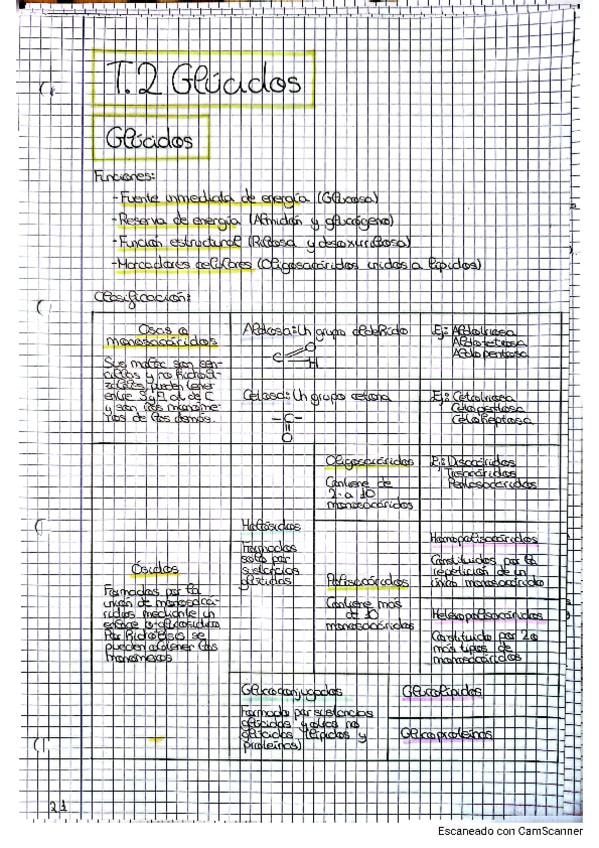 T.2 Glúcidos
Glúcidos
Funciones:
- Fuente inmediata de energía (Glucosa)
- Reserva de energía (Almidón y glucógeno)
- Función estructural (Ribosa y desoxirribosa)
- Marcadores celulares (Oligosacáridos unidos a lípidos)
Clasificación:
Osas o
monosacáridos
Sus moléc son sen-
cillas y no hidroli-
zables, pueden tener
entre 3 y 9 at de C
y son los monóme-
ros de los demás.
Aldosa: Un grupo aldehído
C
O
H
Ej: Aldotriosa
Aldotetrosa
Aldopentosa
Cetosa: Un grupo cetona
-C-
O
Ej: Cetotriosa
Cetopentosa
Cetoheptosa
Ósidos
Formados por la
unión de monosacá-
ridos mediante un
enlace o-glucosídico
Por hidrólisis se
pueden obtener los
monómeros
Holósidos
Formados
solo por
sustancias
glúcidas
Oligosacáridos
Contiene de
2 a 10
monosacáridos
Ej: Disacáridos
Trisacáridos
Pentasacáridos
Polisacáridos
Contiene más
de 10
monosacáridos
Homopolisacáridos
Constituidos por la
repetición de un
único monosacárido
Heteropolisacáridos
Constituido por 2 o
más tipos de
monosacáridos
Glucoconjugados
Formado por sustancias
glúcidas y otras no
glúcidas (lípidos y
proteínas)
Glucolípidos
Glucoproteínas
21
Escaneado con CamScanner